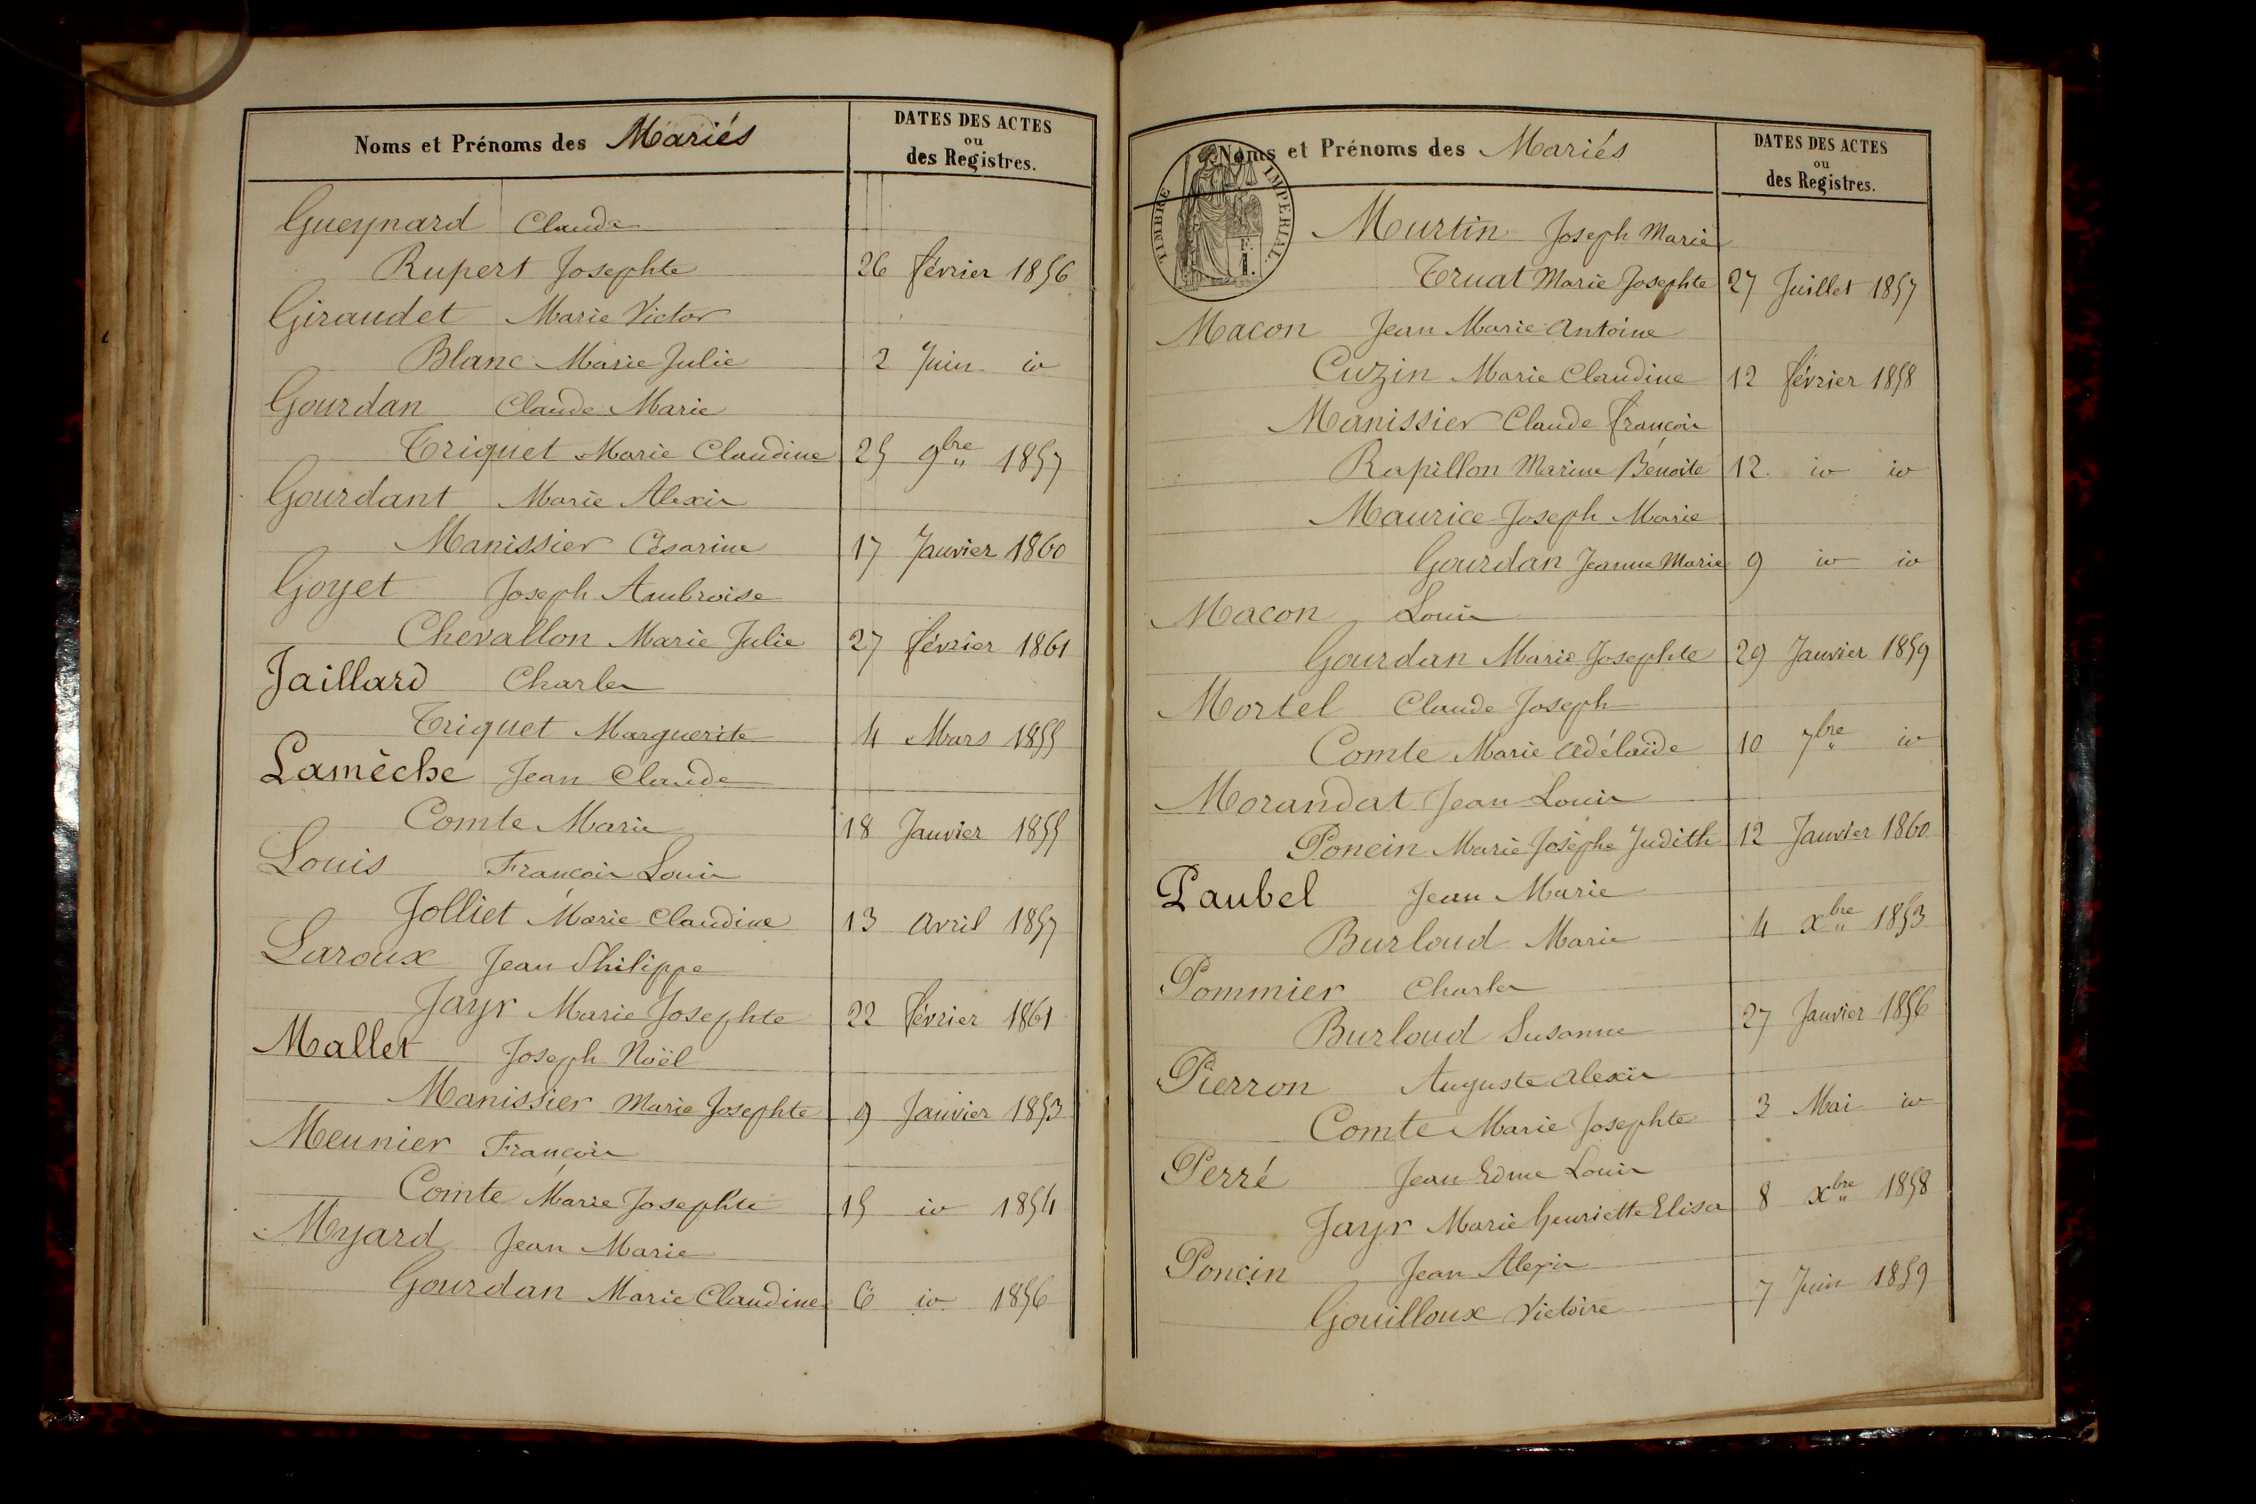 Noms et Prénoms des Mariés
DATES DES ACTES
ou
des Registres.
Gueynard Claude
Rupert Josephte 26 février 1856
Giraudet Marie Victor
Blanc Marie Julie 2 Juin id
Gourdan Claude Marie
Triquet Marie Claudine 25 9bre 1857
Gourdant Marie Alexis
Manissier Césarine 17 Janvier 1860
Goyet Joseph Ambroise
Chevallon Marie Julie 27 février 1861
Jaillard Charles
Triquet Marguerite 4 Mars 1855
Lamèche Jean Claude
Comte Marie 18 Janvier 1855
Louis François Louis
Jolliet Marie Claudine 13 avril 1857
Laroux Jean Philippe
Jayr Marie Josephte 22 février 1861
Mallet Joseph Noël
Manissier Marie Josephte 9 Janvier 1853
Meunier François
Comte Marie Josephte 15 id 1854
Myard Jean Marie
Gourdan Marie Claudine 6 id 1856
Noms et Prénoms des Mariés
DATES DES ACTES
ou
des Registres.
TIMBRE IMPERIAL
F.
1.
Murtin Joseph Marie
Truat Marie Josephte 27 Juillet 1857
Macon Jean Marie Antoine
Cuzin Marie Claudine 12 février 1858
Manissier Claude françois
Rapillon Marine Bénoite 12 id id
Maurice Joseph Marie
Gourdan Jeanne Marie 9 id id
Macon Louis
Gourdan Marie Josephte 29 Janvier 1859
Mortel Claude Joseph
Comte Marie adélaïde 10 7bre id
Morandat Jean Louis
Poncin Marie Josèphe Judith 12 Janvier 1860
Paubel Jean Marie
Burloud Marie 4 xbre 1853
Pommier Charles
Burloud Susanne 27 Janvier 1856
Pierron Auguste alexis
Comte Marie Josephte 3 Mai id
Perré Jean Edme Louis
Jayr Marie henriette Elisa 8 xbre 1858
Poncin Jean Alexis
Gouilloux Victoire 7 Juin 1859